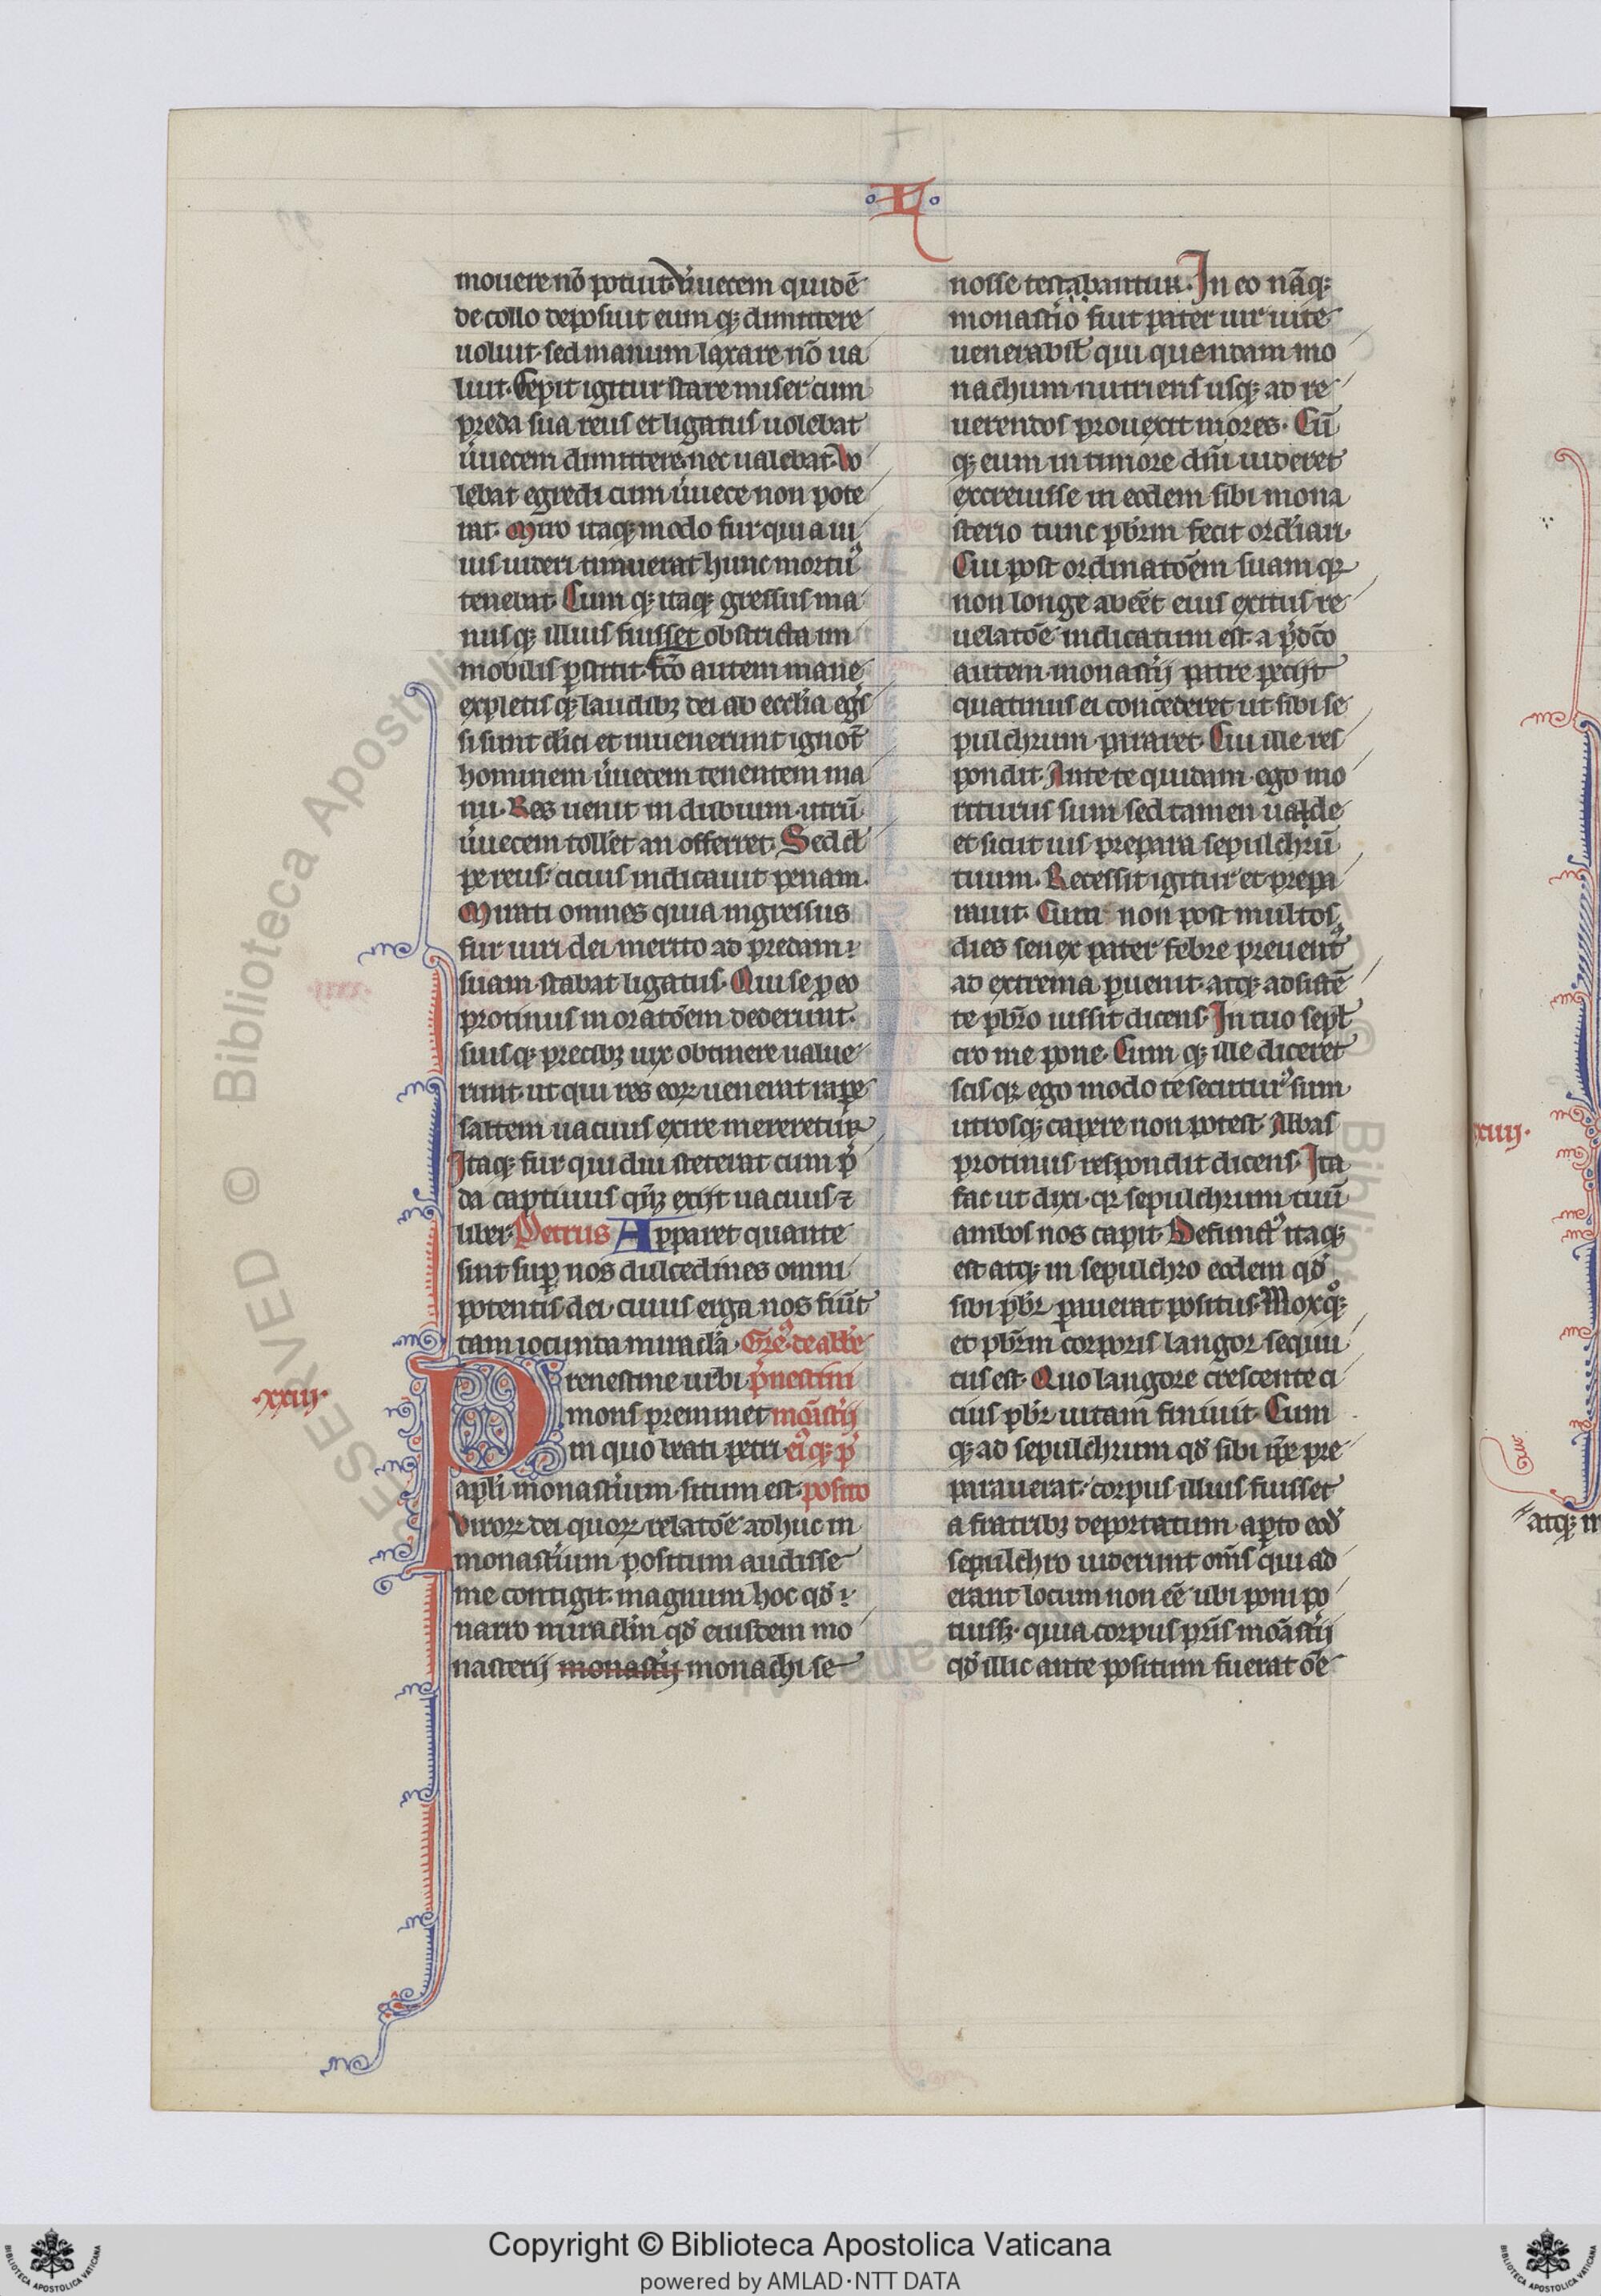 ·L·
mouere nō potuit. Ƿuecem quidē
de collo deposuit eum qꝫ dimittere
uoluit. sed manum laxare nō ua
luit. Cepit igitur stare miser cum
preda sua reus et ligatus uolebat
ueruecem dimittere. nec ualebat. Vo
lebat egredi cum ueruece non pote
rat. Miro itaqꝫ modo fur qui a ui
uis uideri timuerat hunc mortuꝰ
tenebat. Cum qꝫ itaqꝫ gressus ma
nusqꝫ illius fuisset obstricta im
mobilis ꝑstitit. fc̄o autem mane
expletisqꝫ laudibꝫ dei ab ecclīa egˢ
si sunt clīci et inuenerunt ignot̄
hominem ueruecem tenentem ma
nu. Res uenit in dubium. utrū
ueruecem tolleret an offerret. Sed cl
pe reus. cicius indicauit penam.
Mirati omnes quia ingressus
fur uiri dei merito ad predam
suam stabat ligatus. Qui se ꝓ eo
protinus in orat̄oēm dederunt.
suisqꝫ precibꝫ uix obtinere ualue
runt. ut qui res eoꝝ uenerat raꝑe
saltem uacuus exire mereretur
Itaqꝫ fur qui diu steterat cum p̄
da captiuus qn̄qꝫ exijt uacuus ⁊
liber. Petrus Apparet quante
sint suꝑ nos dulcedines omni
potentis dei. cuius erga nos fiūt
tam iocunda miracl̄a. Gre.ꝰ de abb̄e
Prenestine urbi p̄nestini
mons preminet mōastīj
in quo beati petri eiꝰqꝫ p̄
apl̄i monastīum situm est. posito
.xxiii.
viroꝝ dei quoꝝ relat̄oē adhuc in
monastīum positum audisse
me contigit. magnum hoc qd̄
narro miracl̄m qd̄ eiusdem mo
nasterij monastīj monachi se
nosse testabantur. In eo nāqꝫ
monastīo fuit pater uir uite
uenerabil̄ qui quendam mo
nachum nutriens usqꝫ ad re
uerendos prouexit mores. Cū
qꝫ eum in timore dn̄i uideret
excreuisse in eodem sibi mona
sterio tunc pb̄rm fecit ordīari.
Cui post ordinat̄oēm suam qꝛ
non longe abēēt eius exitus re
uelat̄oē indicatum est. a p̄dc̄o
autem monastīj patre pecijt
quatinus ei concederet ut sibi se
pulchrum ꝑararet. Cui ille res
pondit. Ante te quidam ego mo
riturus sum sed tamen ualde
et sicut uis prepara sepulchrū
tuum. Recessit igitur et prepa
rauit. Cum non post multos
dies senex pater febre preuentꝰ
ad extrema ꝑuenit. atqꝫ adsistē
te pb̄ro iussit dicens. In tuo sepl̄
cro me pone. Cum qꝫ ille diceret
scis qꝛ ego modo te secuturꝰ sum
utrosqꝫ capere non potest. Abbas
protinus respondit dicens. Ita
fac ut dixi. qꝛ sepulchrum tuū
ambos nos capit. Defunctꝰ itaqꝫ
est atqꝫ in sepulchro eodem qd̄
sibi pb̄r ꝑauerat positus. Moxqꝫ
et pb̄rm corporis langor sequu
tus est. Quo langore crescente ci
cius pb̄r uitam finiuit. Cum
qꝫ ad sepulchrum qd̄ sibi ip̄e pre
parauerat. corpus illius fuisset
a fratribꝫ deportatum. aꝑto eod̄
sepulchro uiderunt om̄s qui ad
erant locum non ēē ubi poni po
tuissꝫ. quia corpus pr̄is mōastīj
qd̄ illic ante positum fuerat oē
xiiij.
atqꝫ
Copyright © Biblioteca Apostolica Vaticana
powered by AMLAD·NTT DATA